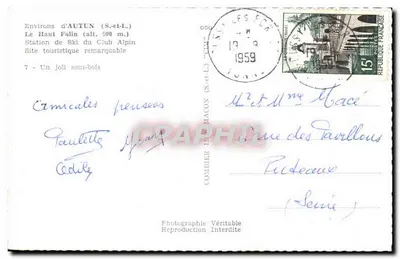 Environs d'AUTUN (S.-et-L.)
Le Haut Folin (alt. 900 m.)
Station de Ski du Club Alpin
Site touristique remarquable
7 - Un joli sous-bois
Amicales pensées
Paulette
Cédile
COMBIER IMP. MACON (S.-et-L.)
1959
15F
Mr et Mme Macé
rue des Pavillons
Puteaux
(Seine)
Photographie Véritable
Reproduction Interdite